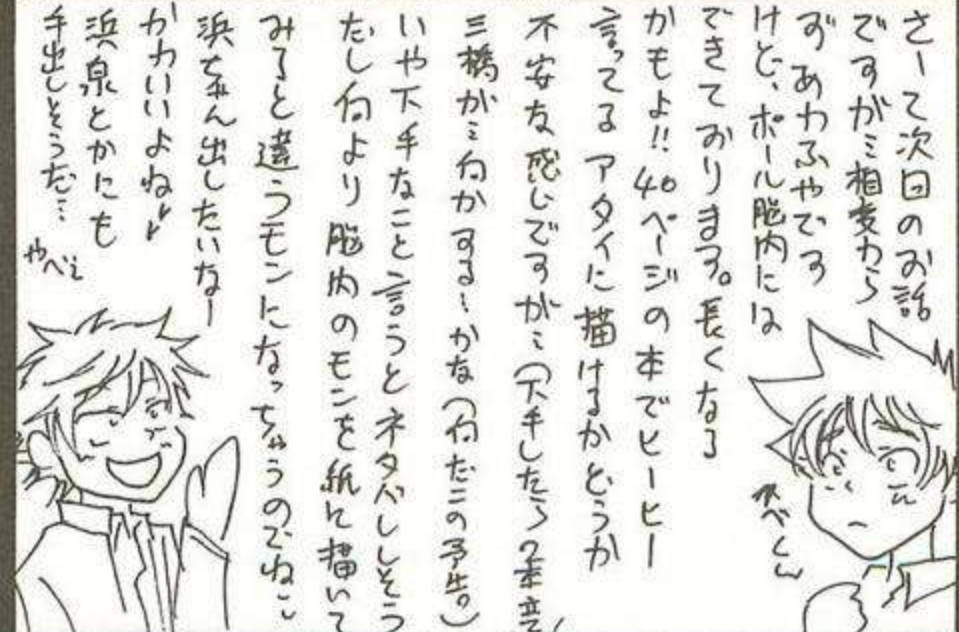 さーて次回のお話
ですが…相変わらず
ずあわふやです
けど、ポール脳内には
できております。長くなる
かもよ!! 40ページの本でヒーヒー
言ってる アタイに描けるかどうか
不安な感じですが…(下手したら2本立
三橋が…何かする…かな(何だこの予告。)
いや下手なこと言うとネタバレしそう
だし何より脳内のモンを紙に描いて
みると違うモンになっちゃうのでね…
浜ちゃん出したいなー
かわいいよね
浜泉とかにも
手出しそうだ…
やべぇ
べくん